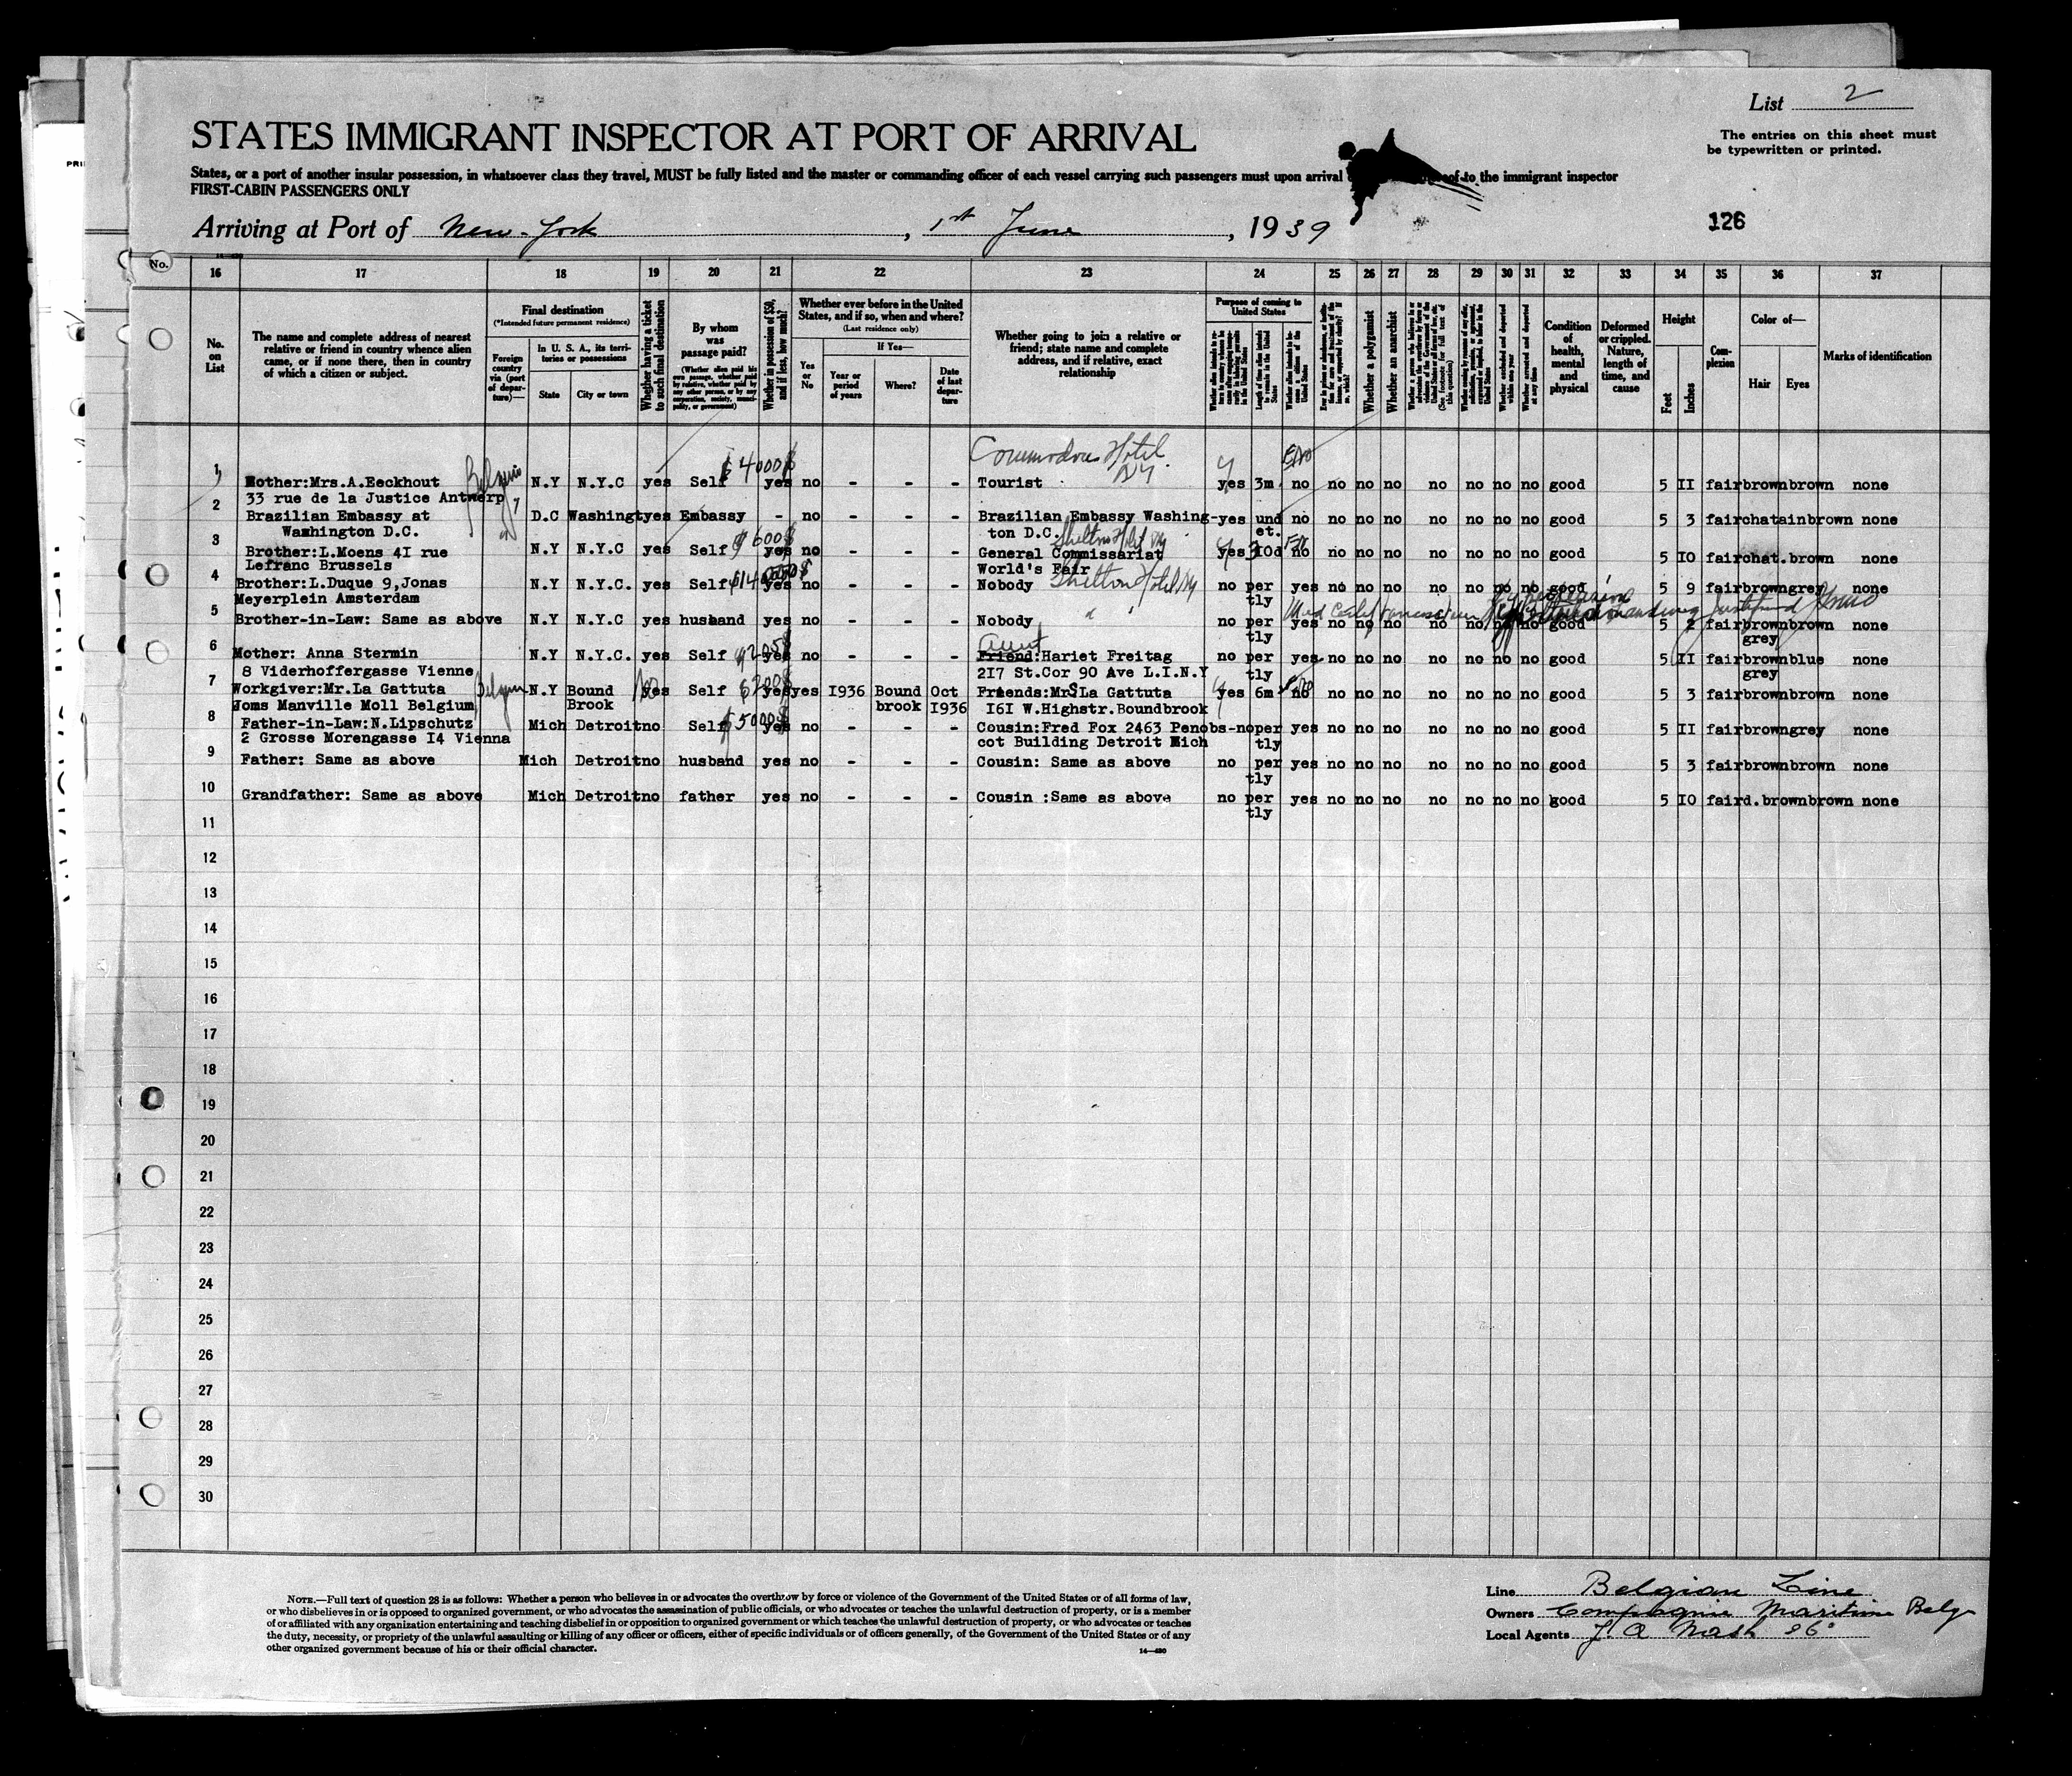 List 2
STATES IMMIGRANT INSPECTOR AT PORT OF ARRIVAL
The entries on this sheet must
be typewritten or printed.
States, or a port of another insular possession, in whatsoever class they travel, MUST be fully listed and the master or commanding officer of each vessel carrying such passengers must upon arrival to the immigrant inspector
FIRST-CABIN PASSENGERS ONLY
Arriving at Port of New-York, 1st June, 1939
126
No.
16 17 18 19 20 21 22 23 24 25 26 27 28 29 30 31 32 33 34 35 36 37
No. on List
The name and complete address of nearest
relative or friend in country whence alien
came, or if none there, then in country
of which a citizen or subject.
Final destination
(*Intended future permanent residence)
Foreign country via (port of departure)—
In U. S. A., its territories or possessions
State
City or town
Whether having a ticket to such final destination
By whom was passage paid?
(Whether alien paid his own passage, whether paid by relative, whether paid by any other person, or by any corporation, society, municipality, or government)
Whether in possession of $50, and if less, how much?
Whether ever before in the United
States, and if so, when and where?
(Last residence only)
Yes or No
If Yes—
Year or period of years
Where?
Date of last departure
Whether going to join a relative or
friend; state name and complete
address, and if relative, exact
relationship
Purpose of coming to United States
Whether a polygamist
Whether an anarchist
Condition of health, mental and physical
Deformed or crippled. Nature, length of time, and cause
Height
Feet
Inches
Complexion
Color of—
Hair
Eyes
Marks of identification
Commodore Hotel
NY
$4000
1 Mother:Mrs.A.Eeckhout N.Y N.Y.C yes Self yes no - - - Tourist yes 3m no no no no no no no no good 5 II fair brown brown none
33 rue de la Justice Antwerp
2 Brazilian Embassy at D.C Washingt yes Embassy - no - - - Brazilian Embassy Washing- yes und no no no no no no no no good 5 3 fair chatain brown none
Washington D.C. ton D.C. et.
600$ Shelton Hotel NY
3 Brother:L.Moens 4I rue N.Y N.Y.C yes Self yes no - - - General Commissariat yes 30d no no no no no no no no good 5 IO fair chat. brown none
Lefranc Brussels World's Fair
4 Brother:L.Duque 9,Jonas N.Y N.Y.C. yes Self yes no - - - Nobody Shelton Hotel NY no per yes no no no no no no no good 5 9 fair brown grey none
Meyerplein Amsterdam tly
5 Brother-in-Law: Same as above N.Y N.Y.C yes husband yes no - - - Nobody no per yes no no no no no no no good 5 2 fair brown brown none
tly grey
Aunt
6 Mother: Anna Stermin N.Y N.Y.C. yes Self yes no - - - Friend:Hariet Freitag no per yes no no no no no no no good 5 II fair brown blue none
8 Viderhoffergasse Vienne 2I7 St.Cor 90 Ave L.I.N.Y tly grey
7 Workgiver:Mr.La Gattuta Belgium N.Y Bound No yes Self $200 yes yes I936 Bound Oct Friends:MrS La Gattuta yes 6m no no no no no no no no good 5 3 fair brown brown none
Joms Manville Moll Belgium Brook brook I936 I6I W.Highstr.Boundbrook
8 Father-in-Law:N.Lipschutz Mich Detroit no Self $5000 yes no - - - Cousin:Fred Fox 2463 Penobs- no per yes no no no no no no no good 5 II fair brown grey none
2 Grosse Morengasse I4 Vienna cot Building Detroit Mich tly
9 Father: Same as above Mich Detroit no husband yes no - - - Cousin: Same as above no per yes no no no no no no no good 5 3 fair brown brown none
tly
10 Grandfather: Same as above Mich Detroit no father yes no - - - Cousin :Same as above no per yes no no no no no no no good 5 IO fair d.brown brown none
tly
11
12
13
14
15
16
17
18
19
20
21
22
23
24
25
26
27
28
29
30
NOTE.—Full text of question 28 is as follows: Whether a person who believes in or advocates the overthrow by force or violence of the Government of the United States or of all forms of law,
or who disbelieves in or is opposed to organized government, or who advocates the assassination of public officials, or who advocates or teaches the unlawful destruction of property, or is a member
of or affiliated with any organization entertaining and teaching disbelief in or opposition to organized government or which teaches the unlawful destruction of property, or who advocates or teaches
the duty, necessity, or propriety of the unlawful assaulting or killing of any officer or officers, either of specific individuals or of officers generally, of the Government of the United States or of any
other organized government because of his or their official character.
Line Belgian Line
Owners Compagnie Maritime Belge
Local Agents